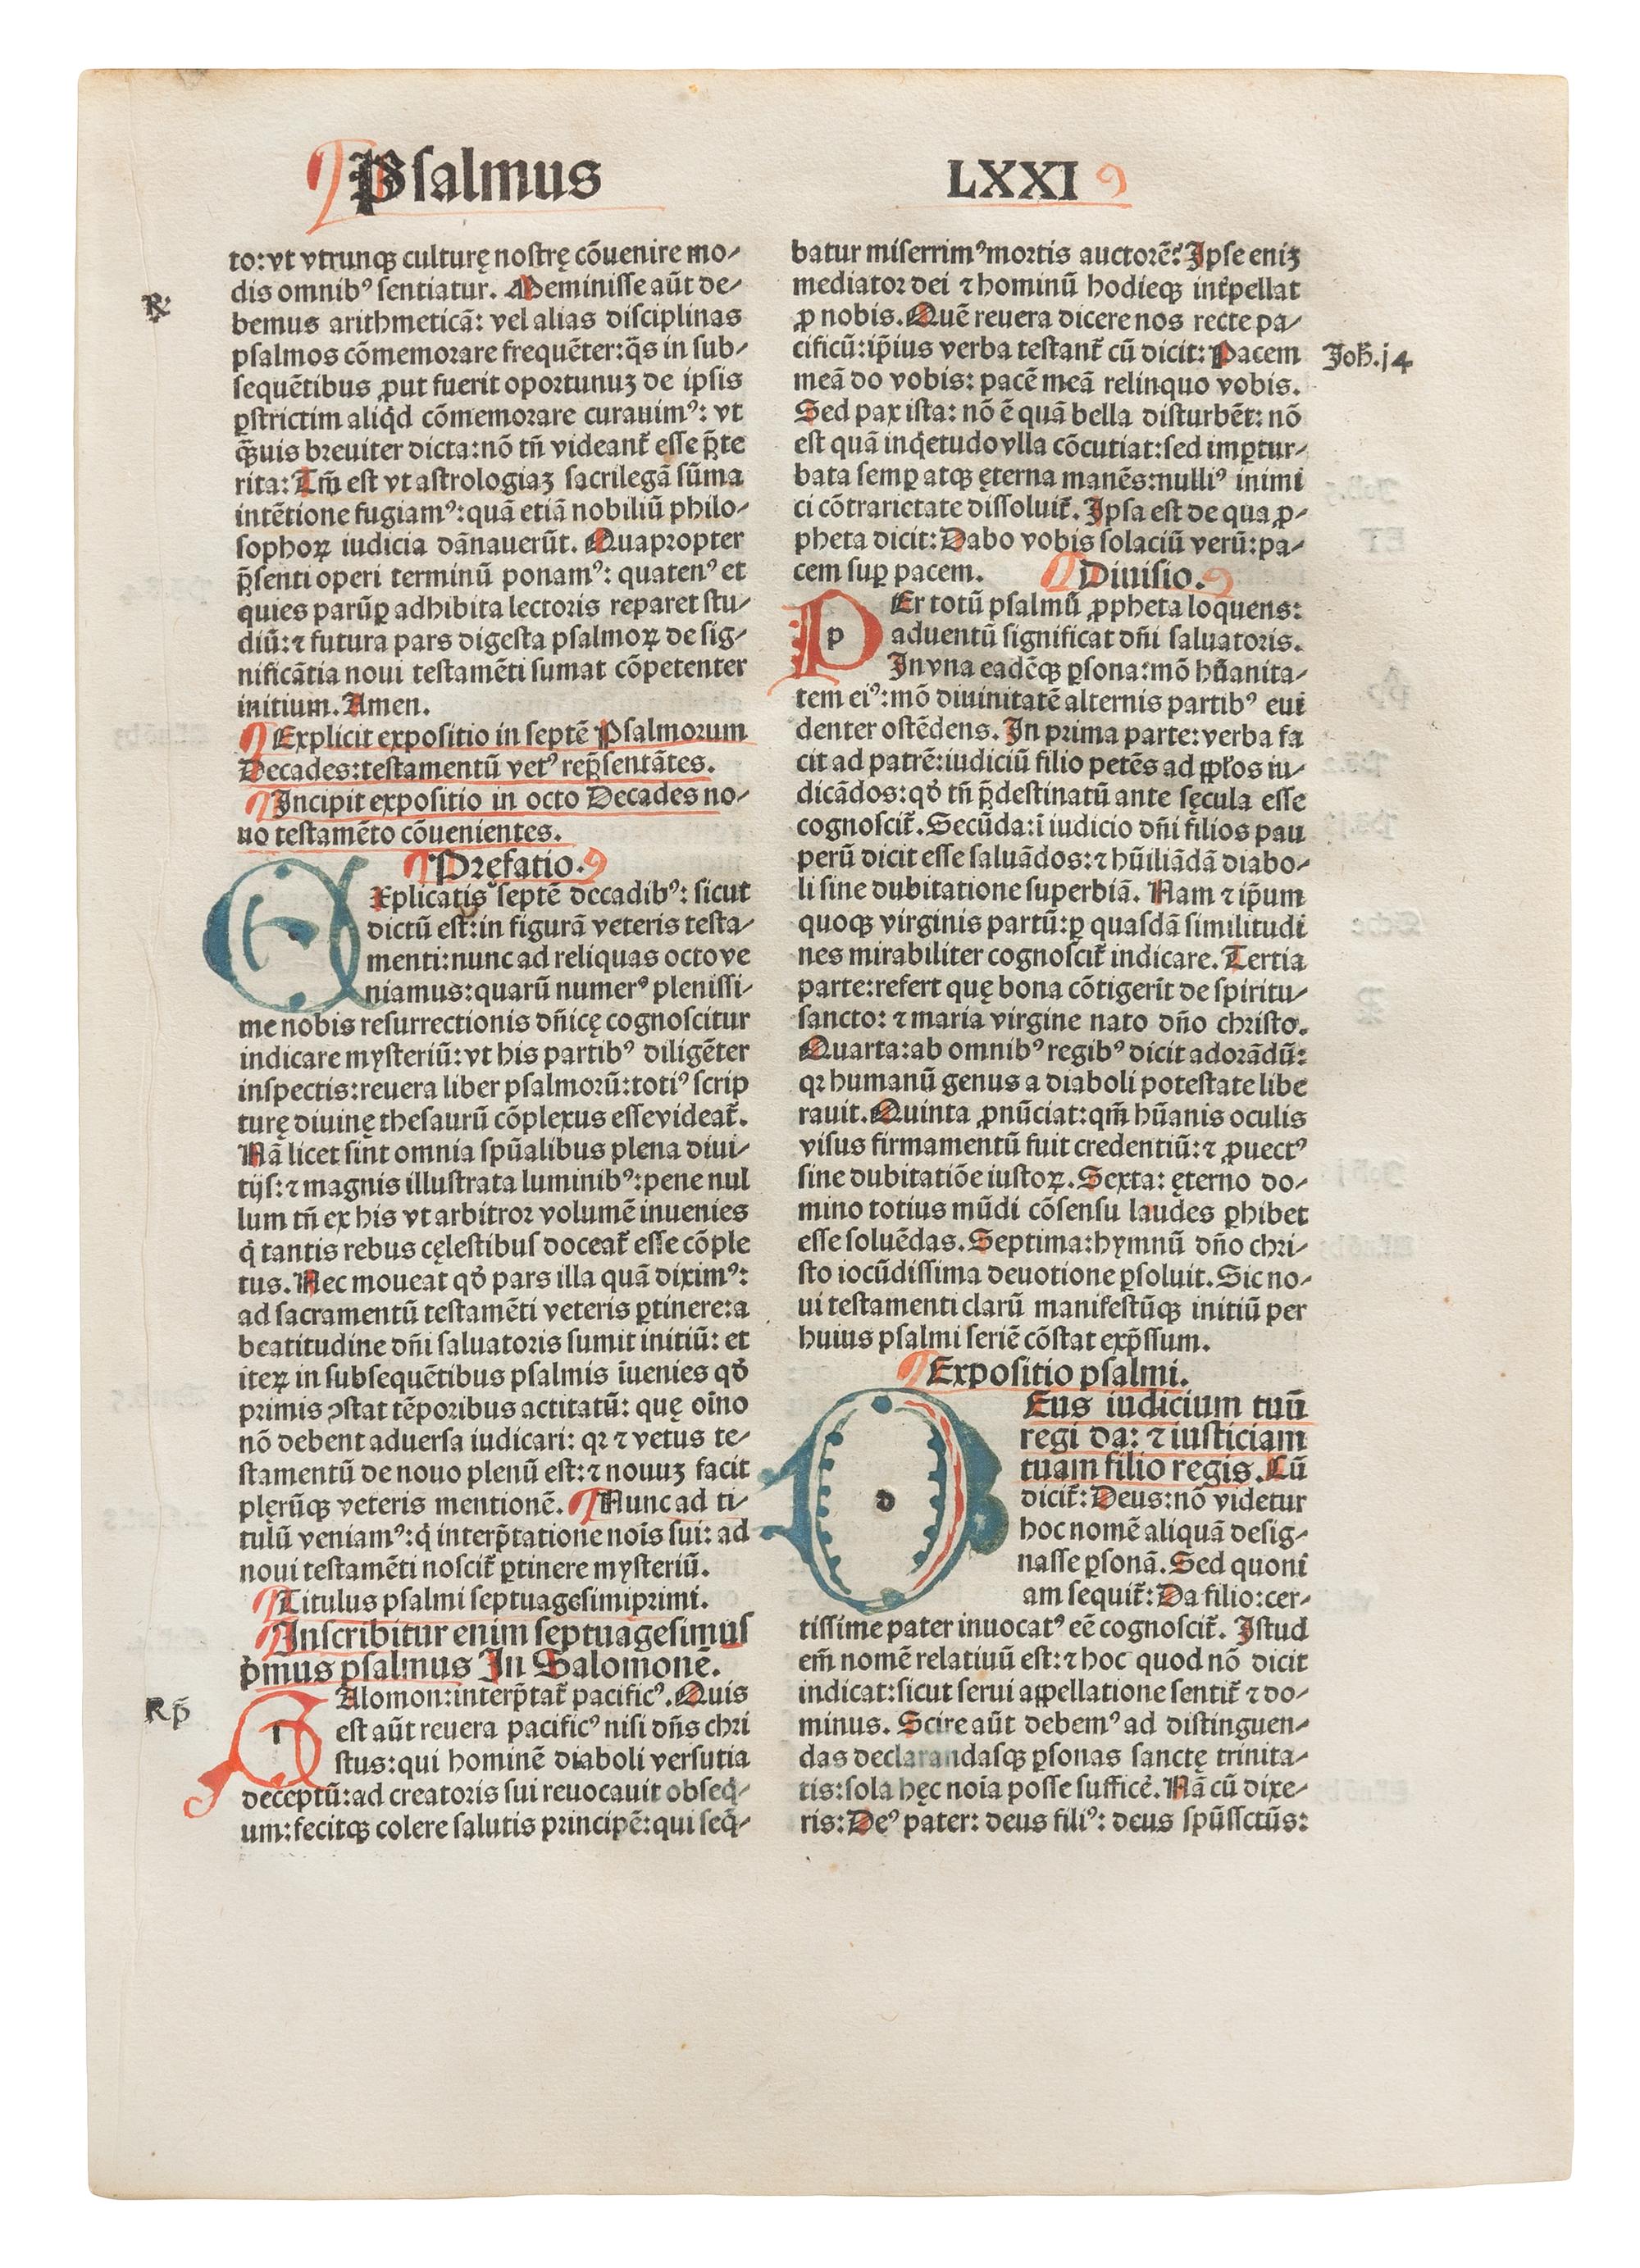 Psalmus LXXI
to: vt vtrunqꝫ culturę nostrę cōuenire mo⸗
dis omnibꝰ sentiatur. Meminisse aūt de⸗
R.
bemus arithmeticā: vel alias disciplinas
psalmos cōmemorare frequēter: q̄s in sub⸗
sequētibus ꝓut fuerit oportunuꝫ de ipsis
ꝑstrictim aliq̇d cōmemorare curauimꝰ: vt
q̄ꝫuis breuiter dicta: nō tn̄ videant᷑ esse p̄te
rita: Tm̄ est vt astrologiaꝫ sacrilegā sūma
intētione fugiamꝰ: quā etiā nobiliū philo⸗
sophoꝝ iudicia dānauerūt. Quapropter
p̄senti operi terminū ponamꝰ: quatenꝰ et
quies parūꝑ adhibita lectoris reparet stu⸗
diū: ⁊ futura pars digesta psalmoꝝ de sig⸗
nificātia noui testamēti sumat cōpetenter
initium. Amen.
¶ Explicit expositio in septē Psalmorum
Decades: testamentū vetꝰ rep̄sentātes.
¶ Incipit expositio in octo Decades no⸗
uo testamēto cōuenientes.
¶ Pręfatio.
E Xplicatis septē decadibꝰ: sicut
dictū est: in figurā veteris testa⸗
menti: nunc ad reliquas octo ve
niamus: quarū numerꝰ plenissi⸗
me nobis resurrectionis dn̄icę cognoscitur
indicare mysteriū: vt his partibꝰ diligēter
inspectis: reuera liber psalmorū: totiꝰ scrip
turę diuinę thesaurū cōplexus esse videat᷑.
Nā licet sint omnia spūalibus plena diui⸗
tijs: ⁊ magnis illustrata luminibꝰ: pene nul
lum tn̄ ex his vt arbitror volumē inuenies
q̇ tantis rebus cęlestibus doceat᷑ esse cōple
tus. Nec moueat qđ pars illa quā diximꝰ:
ad sacramentū testamēti veteris ꝑtinere: a
beatitudine dn̄i saluatoris sumit initiū: et
iteꝝ in subsequētibus psalmis īuenies qđ
primis ꝯstat tēporibus actitatū: quę oīno
nō debent aduersa iudicari: qꝛ ⁊ vetus te⸗
stamentū de nouo plenū est: ⁊ nouuꝫ facit
plęrūqꝫ veteris mentionē. ¶ Nunc ad ti⸗
tulū veniamꝰ: q̇ interp̄tatione nois̄ sui: ad
noui testamēti noscit᷑ ꝑtinere mysteriū.
¶ Titulus psalmi septuagesimiprimi.
¶ Inscribitur enim septuagesimus
pͥmus psalmus In Salomonē.
Rp̄
S Alomon: interp̄tat᷑ pacificꝰ. Quis
est aūt reuera pacificꝰ nisi dn̄s chri
stus: qui hominē diaboli versutia
deceptū: ad creatoris sui reuocauit obseq̇⸗
um: fecitqꝫ colere salutis principē: qui seq̇⸗
batur miserrimꝰ mortis auctorē: Ipse eniꝫ
mediator dei ⁊ hominū hodieqꝫ int᷑pellat
ꝓ nobis. Quē reuera dicere nos recte pa⸗
cificū: ip̄ius verba testant᷑ cū dicit: Pacem
Joh̄. j4
meā do vobis: pacē meā relinquo vobis.
Sed pax ista: nō ē quā bella disturbēt: nō
est quā inq̇etudo vlla cōcutiat: sed imꝑtur⸗
bata semꝑ atqꝫ ęterna manēs: nulliꝰ inimi
ci cōtrarietate dissoluit᷑. Ipsa est de qua ꝓ⸗
pheta dicit: Dabo vobis solaciū verū: pa⸗
cem suꝑ pacem. ¶ Diuisio.
P Er totū psalmū ꝓpheta loquens:
aduentū significat dn̄i saluatoris.
In vna eadēqꝫ ꝑsona: mō hūanita⸗
tem eiꝰ: mō diuinitatē alternis partibꝰ eui
denter ostēdens. In prima parte: verba fa
cit ad patrē: iudiciū filio petēs ad pp̄los iu⸗
dicādos: qđ tn̄ p̄destinatū ante sęcula esse
cognoscit᷑. Secūda: ī iudicio dn̄i filios pau
perū dicit esse saluādos: ⁊ hūiliādā diabo⸗
li sine dubitatione superbiā. Nam ⁊ ip̄um
quoqꝫ virginis partū: ꝑ quasdā similitudi
nes mirabiliter cognoscit᷑ indicare. Tertia
parte: refert quę bona cōtigerīt de spiritu⸗
sancto: ⁊ maria virgine nato dn̄o christo.
Quarta: ab omnibꝰ regibꝰ dicit adorādū:
qꝛ humanū genus a diaboli potestate libe
rauit. Quinta ꝓnūciat: qm̄ hūanis oculis
visus firmamentū fuit credentiū: ⁊ ꝓuectꝰ
sine dubitatiōe iustoꝝ. Sexta: ęterno do⸗
mino totius mūdi cōsensu laudes ꝑhibet
esse soluēdas. Septima: hymnū dn̄o chri⸗
sto iocūdissima deuotione ꝑsoluit. Sic no⸗
ui testamenti clarū manifestūqꝫ initiū per
huius psalmi seriē cōstat exp̄ssum.
¶ Expositio psalmi.
D Eus iudicium tuū
regi da: ⁊ iusticiam
tuam filio regis. Cū
dicit᷑: Deus: nō videtur
hoc nomē aliquā desig⸗
nasse ꝑsonā. Sed quoni
am sequit᷑: Da filio: cer⸗
tissime pater inuocatꝰ eē cognoscit᷑. Istud
em̄ nomē relatiuū est: ⁊ hoc quod nō dicit
indicat: sicut serui appellatione sentit᷑ ⁊ do⸗
minus. Scire aūt debemꝰ ad distinguen⸗
das declarandasqꝫ ꝑsonas sanctę trinita⸗
tis: sola hęc noīa posse sufficē. Nā cū dixe⸗
ris: Deꝰ pater: deus filiꝰ: deus spūssctūs: